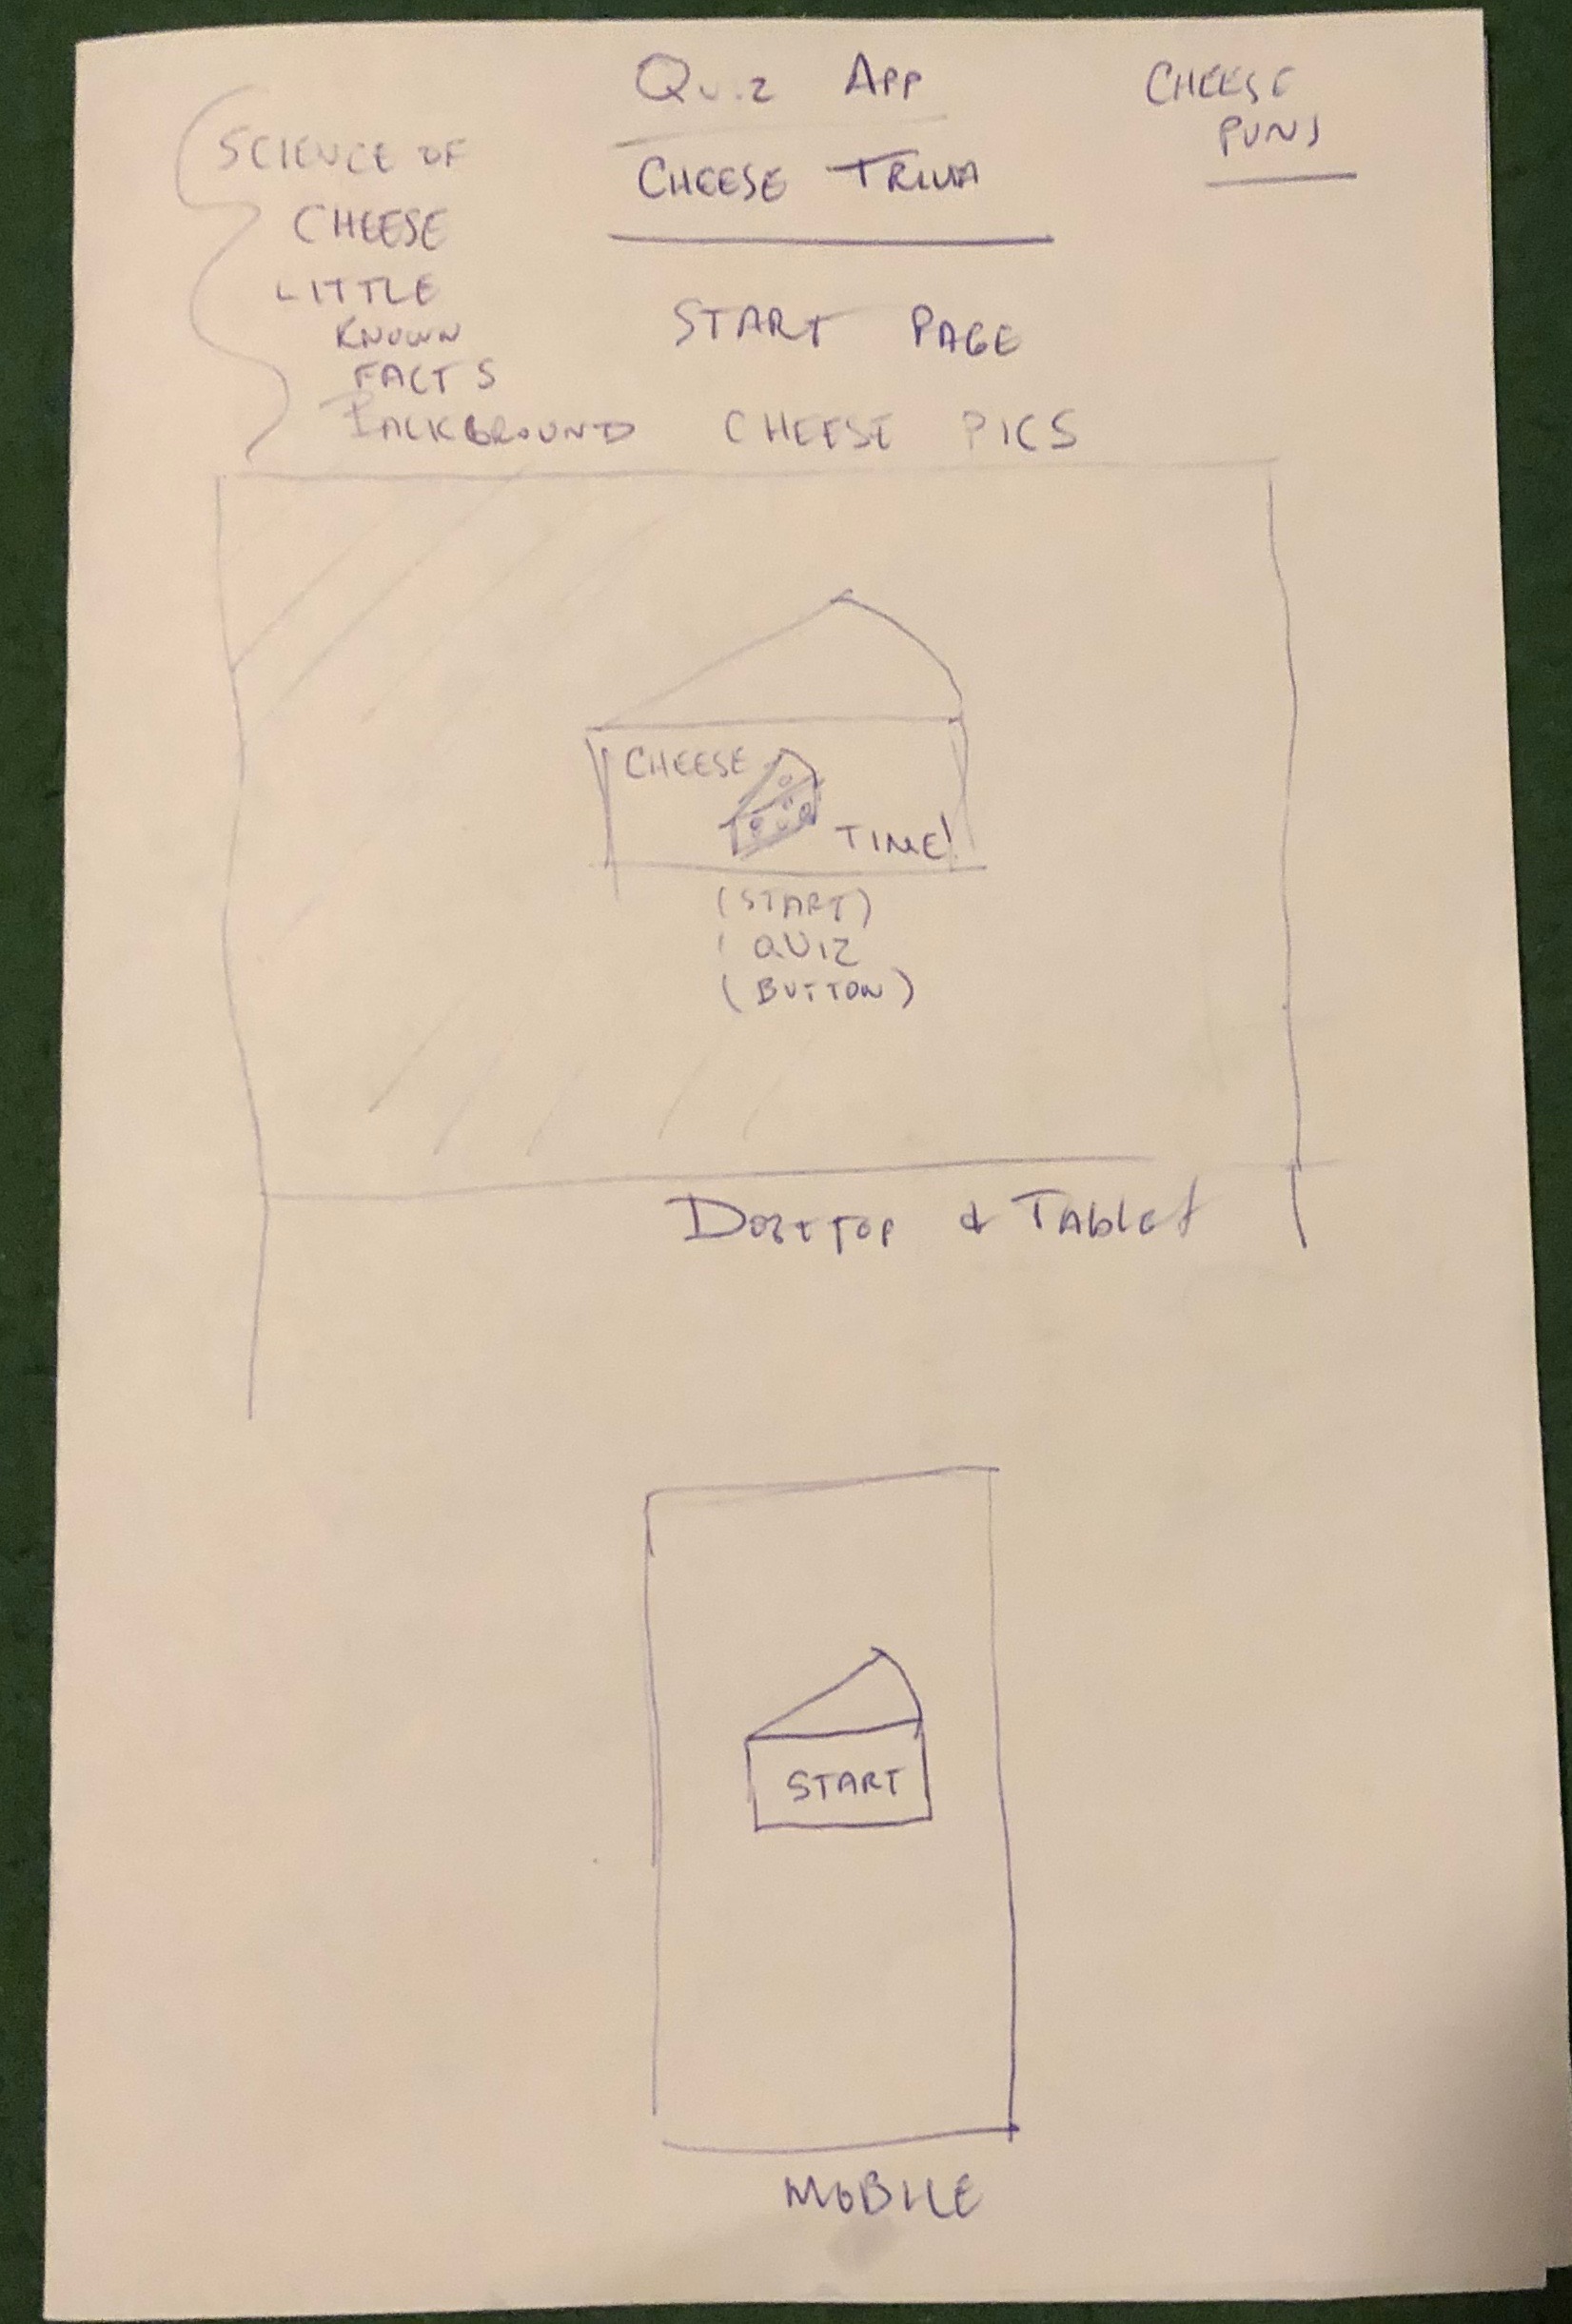 Quiz App
CHEESE TRIVIA
CHEESE
PUNS
SCIENCE OF
CHEESE
LITTLE
KNOWN
FACTS
START PAGE
BACKGROUND CHEESE PICS
CHEESE
TIME!
(START)
( QUIZ
(BUTTON)
DESKTOP & TAblet
START
MOBILE